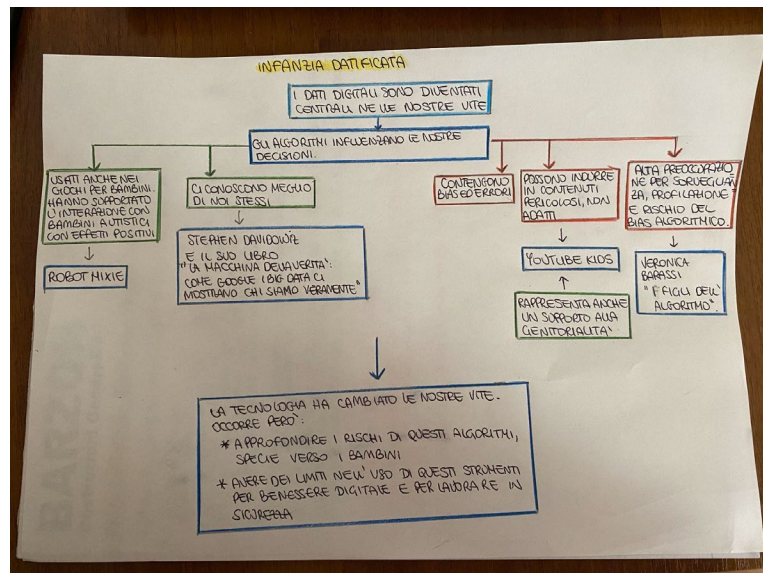 INFANZIA DATIFICATA
I DATI DIGITALI SONO DIVENTATI
CENTRALI NELLE NOSTRE VITE
GLI ALGORITMI INFLUENZANO LE NOSTRE
DECISIONI.
USATI ANCHE NEI
GIOCHI PER BAMBINI.
HANNO SUPPORTATO
L'INTERAZIONE CON
BAMBINI AUTISTICI
CON EFFETTI POSITIVI
ROBOT MIXIE
CI CONOSCONO MEGLIO
DI NOI STESSI
STEPHEN DAVIDOWIZ
E IL SUO LIBRO
"LA MACCHINA DELLA VERITÀ:
COME GOOGLE I BIG DATA CI
MOSTRANO CHI SIAMO VERAMENTE"
CONTENGONO
BIAS ED ERRORI
POSSONO INDURRE
IN CONTENUTI
PERICOLOSI, NON
ADATTI
YOUTUBE KIDS
RAPPRESENTA ANCHE
UN SUPPORTO ALLA
GENITORIALITÀ
ALTA PREOCCUPAZIO
NE PER SORVEGLIAN
ZA, PROFILAZIONE
E RISCHIO DEL
BIAS ALGORITMICO.
VERONICA
BARASSI
"I FIGLI DELL'
ALGORITMO".
LA TECNOLOGIA HA CAMBIATO LE NOSTRE VITE.
OCCORRE PERÒ:
* APPROFONDIRE I RISCHI DI QUESTI ALGORITMI,
SPECIE VERSO I BAMBINI
* AVERE DEI LIMITI NELL'USO DI QUESTI STRUMENTI
PER BENESSERE DIGITALE E PER LAVORARE IN
SICUREZZA